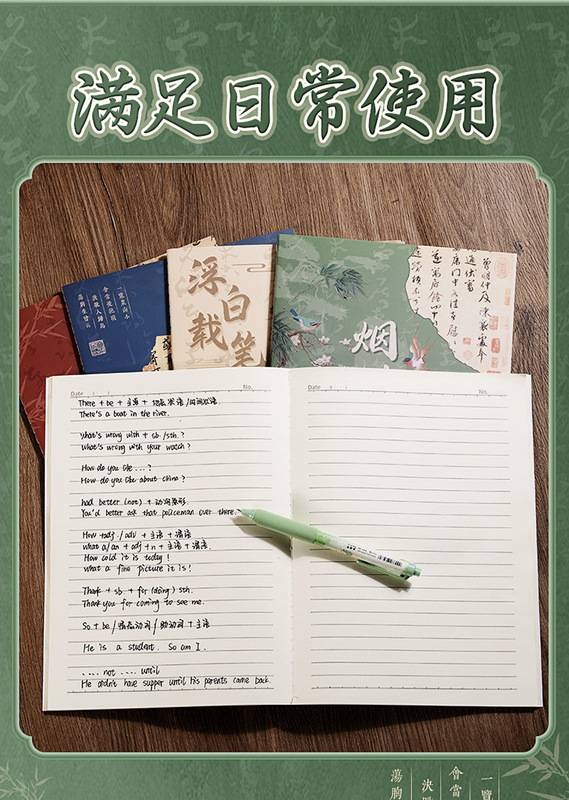 满足日常使用
一览众山小
会当凌绝顶
决眥入归鸟
荡胸生曾云
浮白载笔
烟
Date / /
No.
Date / /
No.
There + be + 主语 + 地点状语 / 时间状语.
There's a boat in the river.
What's wrong with + sb / sth.?
What's wrong with your watch?
How do you like ... ?
How do you like about china?
had better (not) + 动词原形.
You'd better ask that policeman over there.
How +adj / adv + 主语 + 谓语
what a/an + adj + n + 主语 + 谓语.
How cold it is today!
what a fine picture it is!
Thank + sb. + for (doing) sth.
Thank you for coming to see me.
So + be / 情态动词 / 助动词 + 主语
He is a student. So am I.
.... not .... until
He didn't have supper until his parents came back.
一覽
會當
決
蕩胸